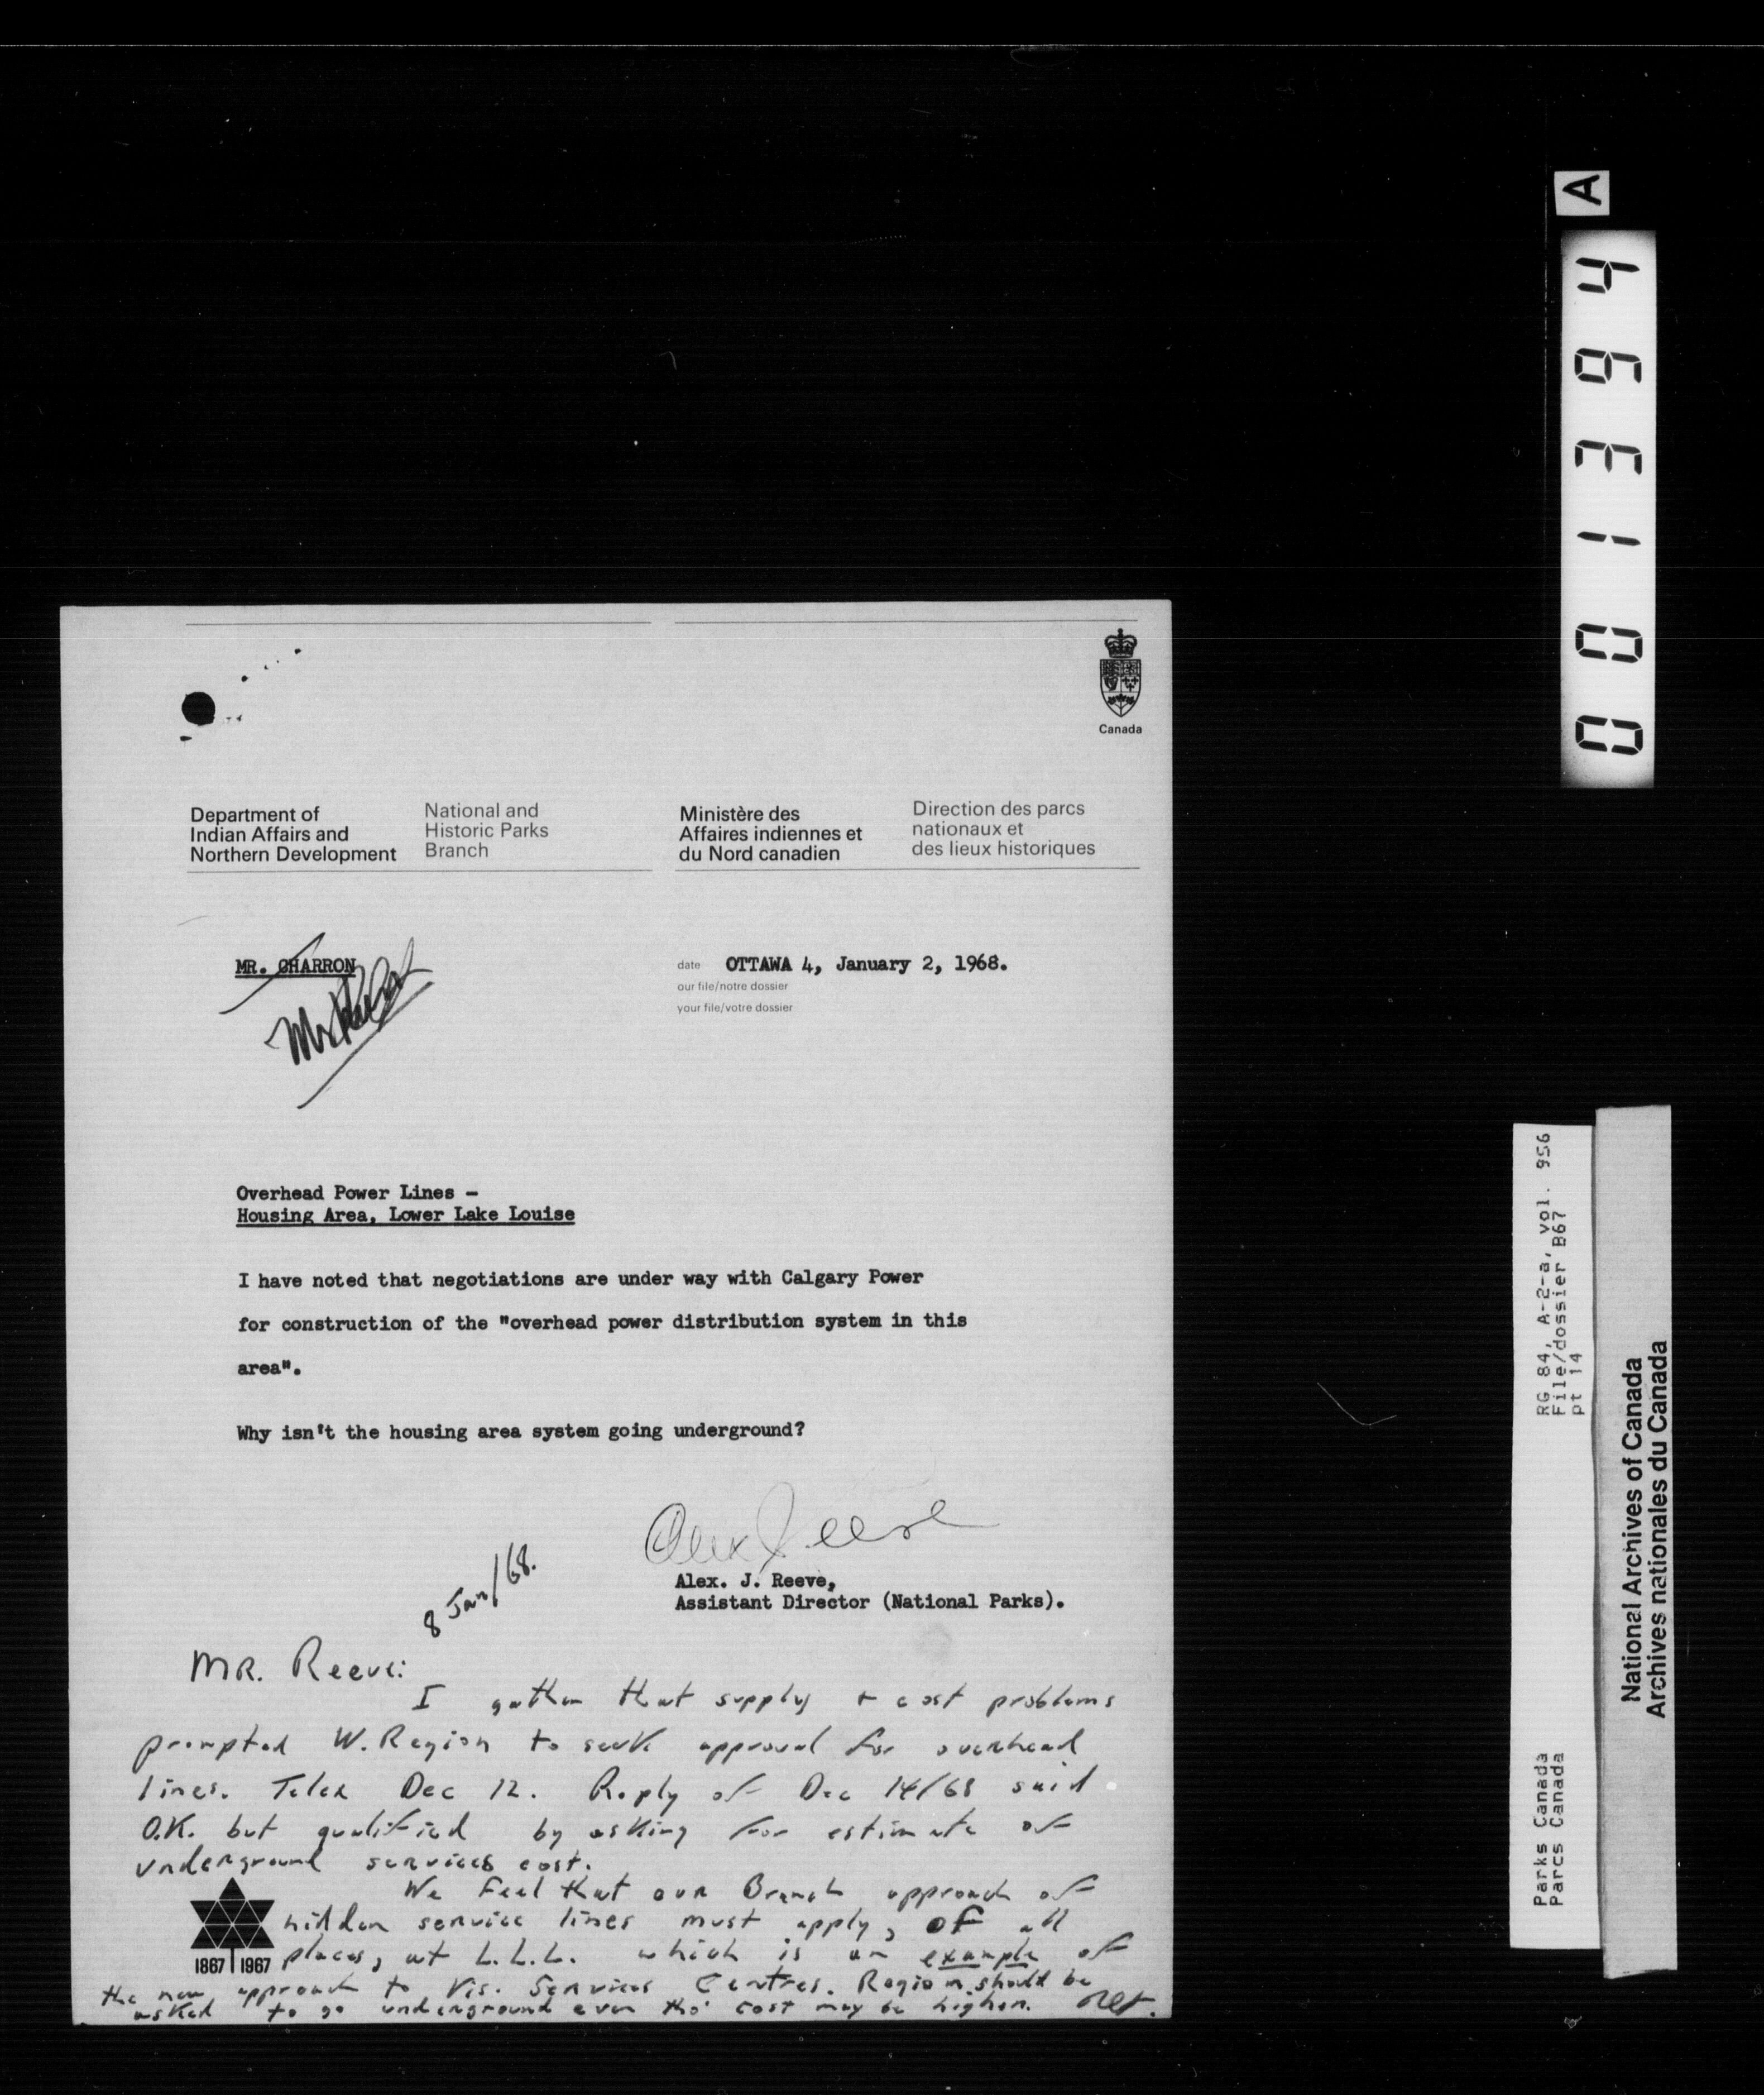 Canada
Department of
Indian Affairs and
Northern Development
National and
Historic Parks
Branch
Ministère des
Affaires indiennes et
du Nord canadien
Direction des parcs
nationaux et
des lieux historiques
MR. CHARRON
date OTTAWA 4, January 2, 1968.
our file/notre dossier
your file/votre dossier
Mr
Overhead Power Lines -
Housing Area, Lower Lake Louise
I have noted that negotiations are under way with Calgary Power
for construction of the "overhead power distribution system in this
area".
Why isn't the housing area system going underground?
Alex J. Reeve
Alex. J. Reeve,
Assistant Director (National Parks).
8 Jan/68.
MR. Reeve:
I gather that supply + cost problems
prompted W. Region to seek approval for overhead
lines. Telex Dec 12. Reply of Dec 14/68 said
O.K. but qualified by asking for estimate of
underground services cost.
We feel that our Branch approach of
hidden service lines must apply, of all
places, at L.L.L. which is an example of
the new approach to Vis. Services Centres. Region should be
asked to go underground even tho' cost may be higher.
1867 1967
A
001394
RG 84, A-2-a, vol. 956
File/dossier B67
pt 14
Parks Canada
Parcs Canada
National Archives of Canada
Archives nationales du Canada